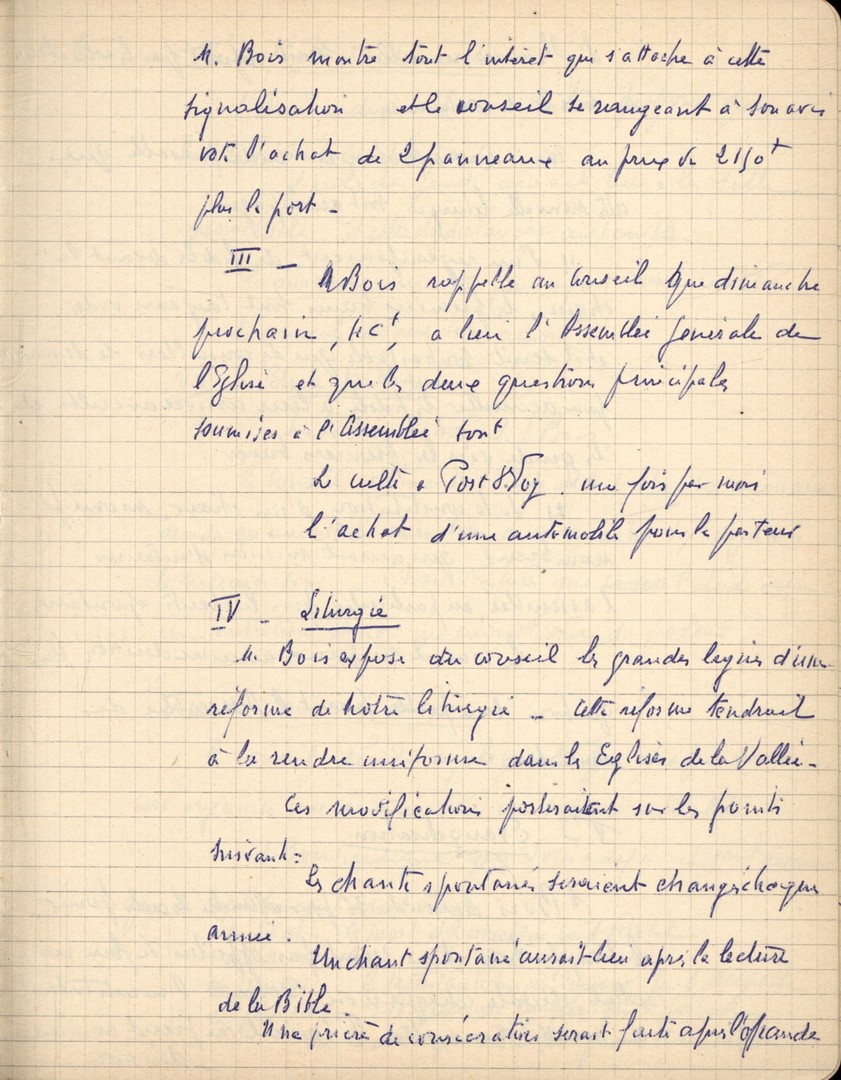 M. Bois montre tout l'intéret qui s'attache à cette
signalisation et le conseil se rangeant à son avis
vote l'achat de 2 panneaux au prix de 2150f
plus le port -
III -
M Bois rappelle au Conseil que dimanche
prochain, , a lieu l'Assemblée Générale de
l'Eglise et que les deux questions principales
soumises à l'Assemblée sont
Le culte à Post St Voy une fois par mois
l'achat d'une automobile pour le pasteur
IV - Liturgie
M. Bois expose au conseil les grandes lignes d'une
réforme de notre liturgie - Cette réforme tendrait
à la rendre uniforme dans les Eglises de la Vallée -
Ces modifications porteraient sur les points
suivants :
Les chants spontanés seraient changés chaque
année .
Un chant spontané aurait lieu après la lecture
de la Bible .
Une prière de consécration serait faite après l'offrande